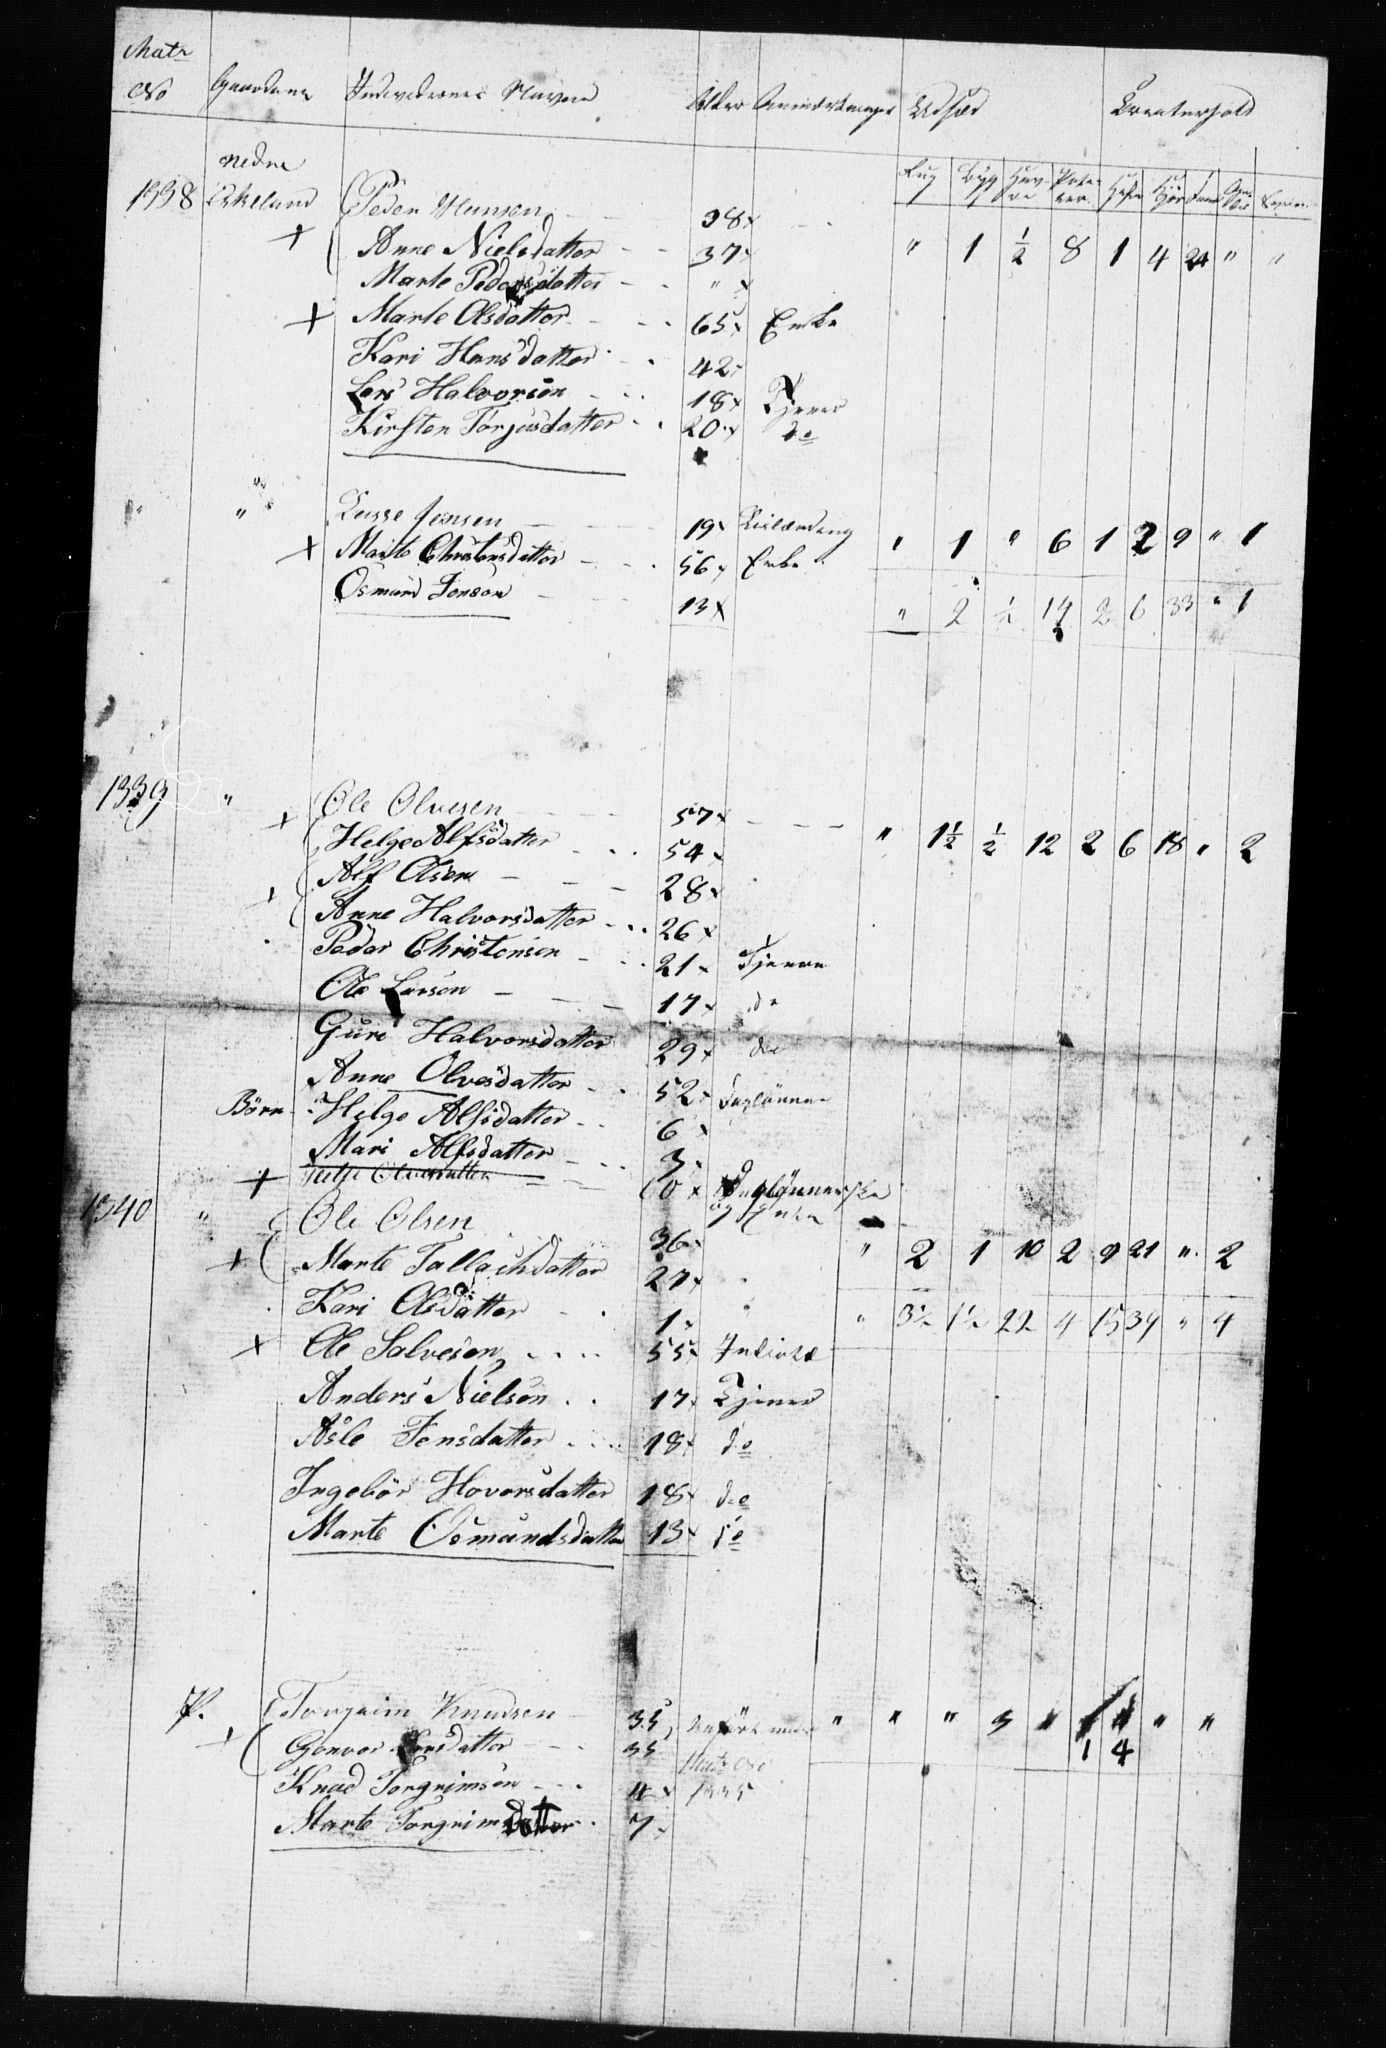 Matr
No Gaardene Individernes Navne Alder Anmærkninger Udsæd Creaturhold
Rug Byg Hav- re Pota- ter Heste
nedre
1338 Birkeland Peder Hansen 38
Anne Nielsdatter 37 " 1 ½ 8 1 4 24 " "
Marte Pedersdatter "
Marte Olsdatter 65 Enke
Kari Hansdatter 42
Lars Halvorsøn 18 Tjener
Kirsten Torjusdatter 20 do
" " Lasse Jensen 19 " 1 " 6 1 2 9 " 1
Marte Christensdatter 56 Enke
Osmund Jensøn 13 " 2 ½ 14 2 6 33 " 1
1339 " Ole Olvesen 57
Helge Alfsdatter 54 " 1½ ½ 12 2 6 18 " 2
Alf Olsen 28
Anne Halvorsdatter 26
Peder Christensen 21 Tjener
Ole Larsøn 17 do
Guri Halvorsdatter 29 do
Anne Olvesdatter 52
Børn Helge Alfsdatter 6
Mari Alfsdatter 3
60 Daglønnerske
og Enke
1340 " Ole Olsen 36
Marte Tallachsdatter 27 " 2 1 10 2 9 21 " 2
Kari Olsdatter 1 " 3½ 1½ 22 4 15 39 " 4
Ole Salvesøn 55 Inderst
Anders Nielsøn 17 Tjener
Asle Jensdatter 18 do
Ingebør Hovorsdatter 18 do
Marte Osmundsdatter 13 do
P. Torgrim Knudsen 35 " " " 3 " 1 4 " "
Gonvor Larsdatter 35 1 4
Knud Torgrimsøn 4 1335
Marte Torgrimsdatter 7